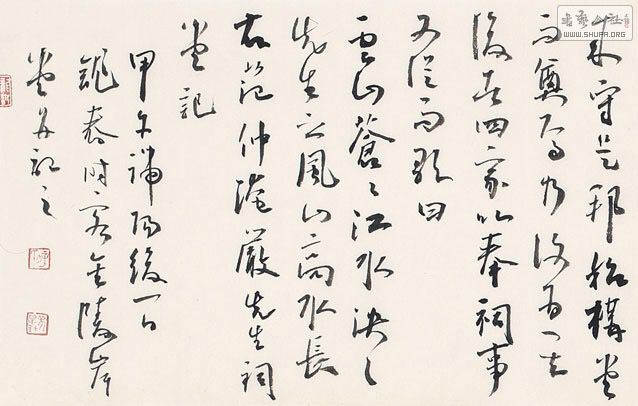 書藝公社
WWW.SHUFA.ORG
来守是邦始構堂
而奠焉乃復为其
後者四家以奉祠事
又従而歌曰
雲山蒼々江水泱々
先生之風山高水長
右范仲淹嚴先生祠
堂記
甲午端陽後一日
春时客金陵岸
堂并記之